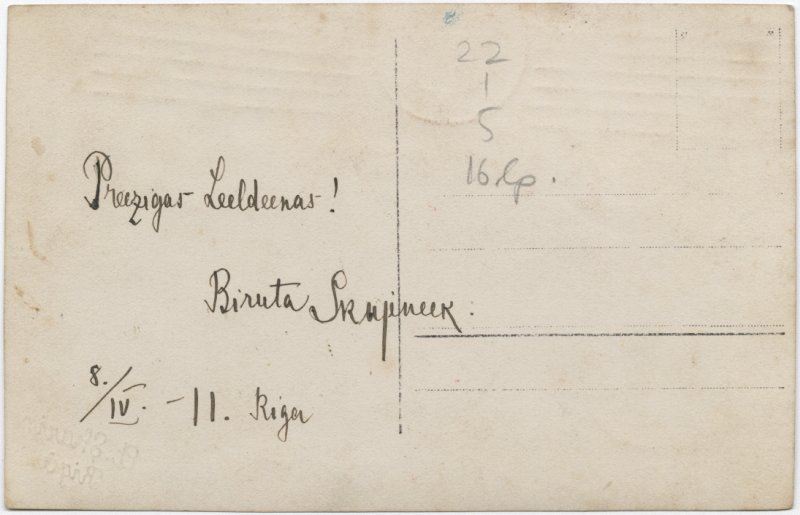 Preezigas Leeldeenas!
Biruta Skujineek.
8./IV. - 11. Riga
22
1
5
16. lp.